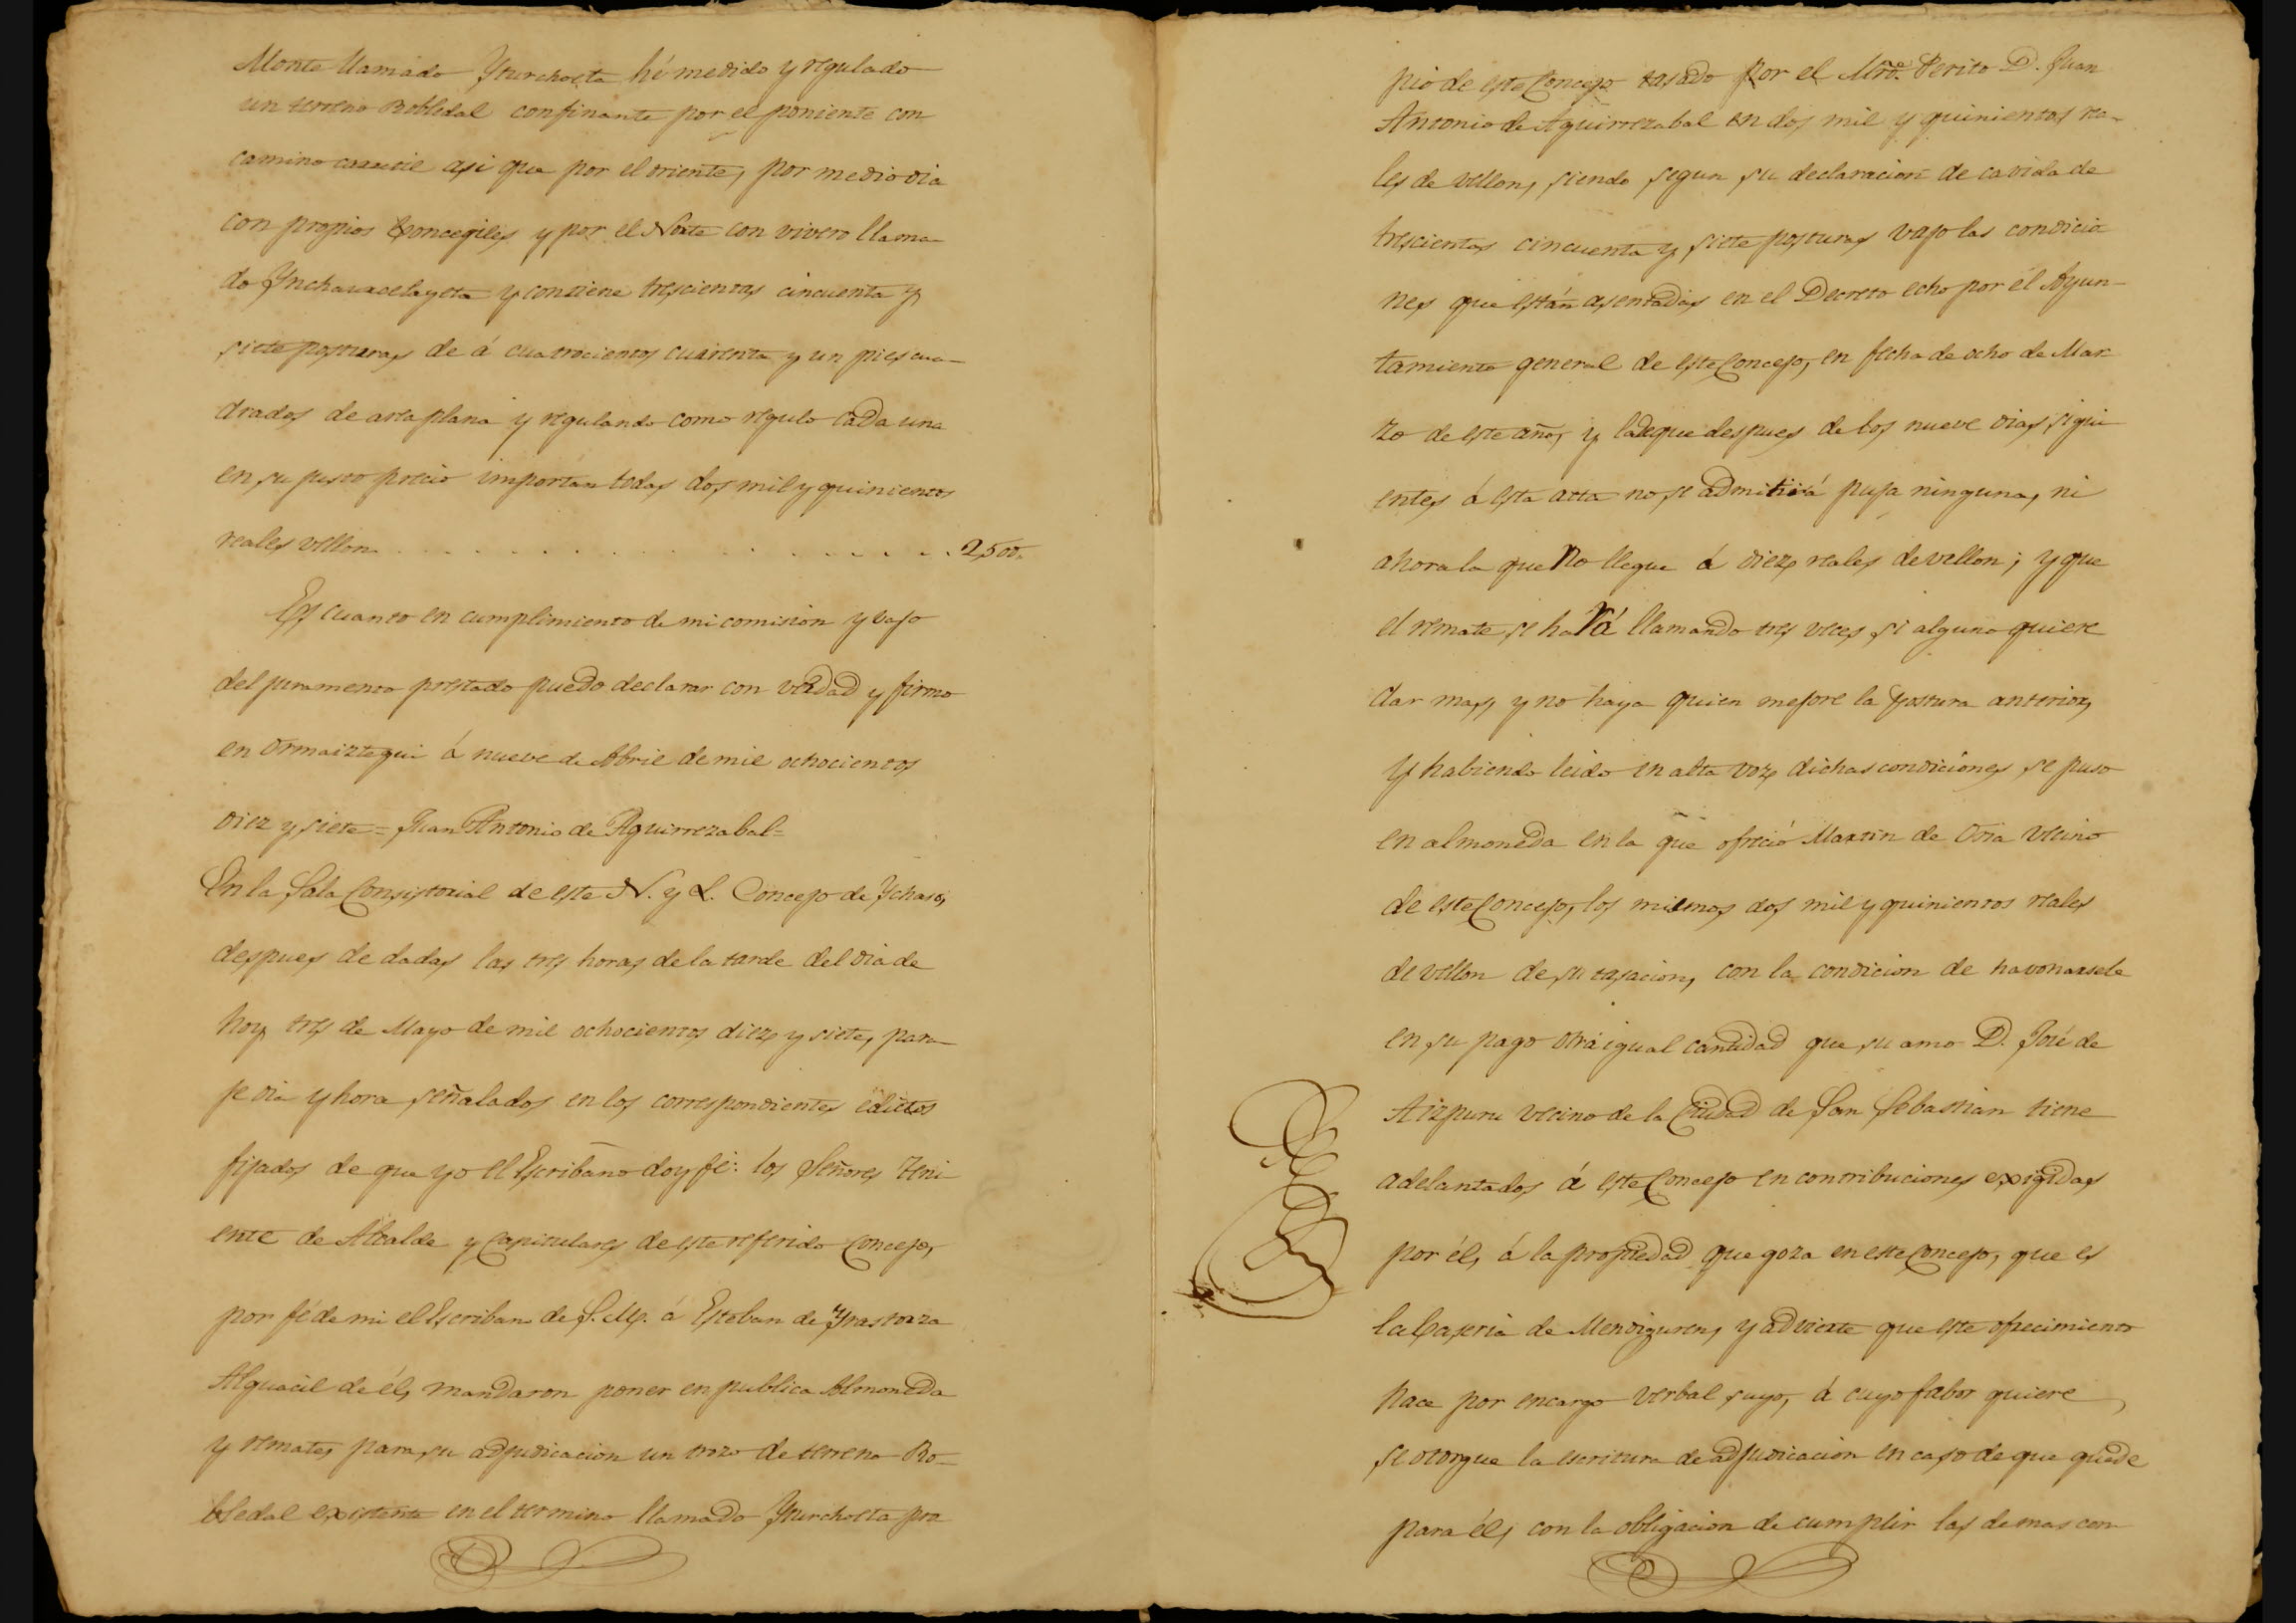 Monte llamado Yturchoeta hé medido y regulado
un terreno Robledal confinante por el poniente con
camino carretil asi que por el oriente, por medio dia
con propios Concegiles y por el Norte con vivero llama-
do Ynchauacelayeta y contiene trescientas cincuenta y
siete posturas de á cuatrocientos cuarenta y un pies cua-
drados de area plana y regulando como regulo cada una
en su justo precio importan todas dos mil y quinientos
reales vellon . . . . . . . . . . . . . . . . . 2,500.
Es cuanto en cumplimiento de mi comision y vajo
del juramento prestado puedo declarar con verdad y firmo
en Ormaiztegui á nueve de Abril de mil ochocientos
diez y siete = Juan Antonio de Aguirrezabal =
En la Sala Consistorial de este N. y L. Concejo de Ychaso,
despues de dadas las tres horas de la tarde del dia de
hoy tres de Mayo de mil ochocientos diez y siete, para-
je dia y hora señalados en los correspondientes edictos
fijados de que yo el Escribano doy fé: los Señores Teni-
ente de Alcalde y Capitulares de este referido Concejo,
por fé de mi el Escribano de S. M. á Esteban de Yrastorza
Alguacil de él, mandaron poner en publica Almoneda
y remate, para su adjudicacion un trozo de terreno Ro-
bledal existente en el termino llamado Yturchoeta pro
pio de este Concejo tasado por el Mtro. Perito D. Juan
Antonio de Aguirrezabal en dos mil y quinientos rea-
les de vellon, siendo segun su declaracion de cavida de
trescientas cincuenta y siete posturas vajo las condicio
nes que están asentadas en el Decreto echo por el Ayun-
tamiento general de este Concejo, en fecha de ocho de Mar-
zo de este año, y la de que despues de los nueve dias sigui
entes á esta acta no se admitirá puja ninguna, ni
ahora la que no llegue á diez reales de vellon; y que
el remate se hará llamando tres veces, si alguno quiere
dar mas, y no haya quien mejore la postura anterior,
y habiendo leido en alta voz dichas condiciones se puso
en almoneda en la que ofreció Martin de Oria vecino
de este Concejo, los mismos dos mil y quinientos reales
de vellon de su tasacion, con la condicion de havonarsele
en su pago otra igual cantidad que su amo D. José de
Aizpuru vecino de la Ciudad de San Sebastian tiene
adelantados á este Concejo en contribuciones exigidas
por él, á la propiedad que goza en este Concejo, que es
la Caseria de Mendizuren, y advierte que este ofrecimiento
hace por encargo verbal suyo, á cuyo fabor quiere
se otorgue la escritura de adjudicacion en caso de que quede
para él, con la obligacion de cumplir las demas con-